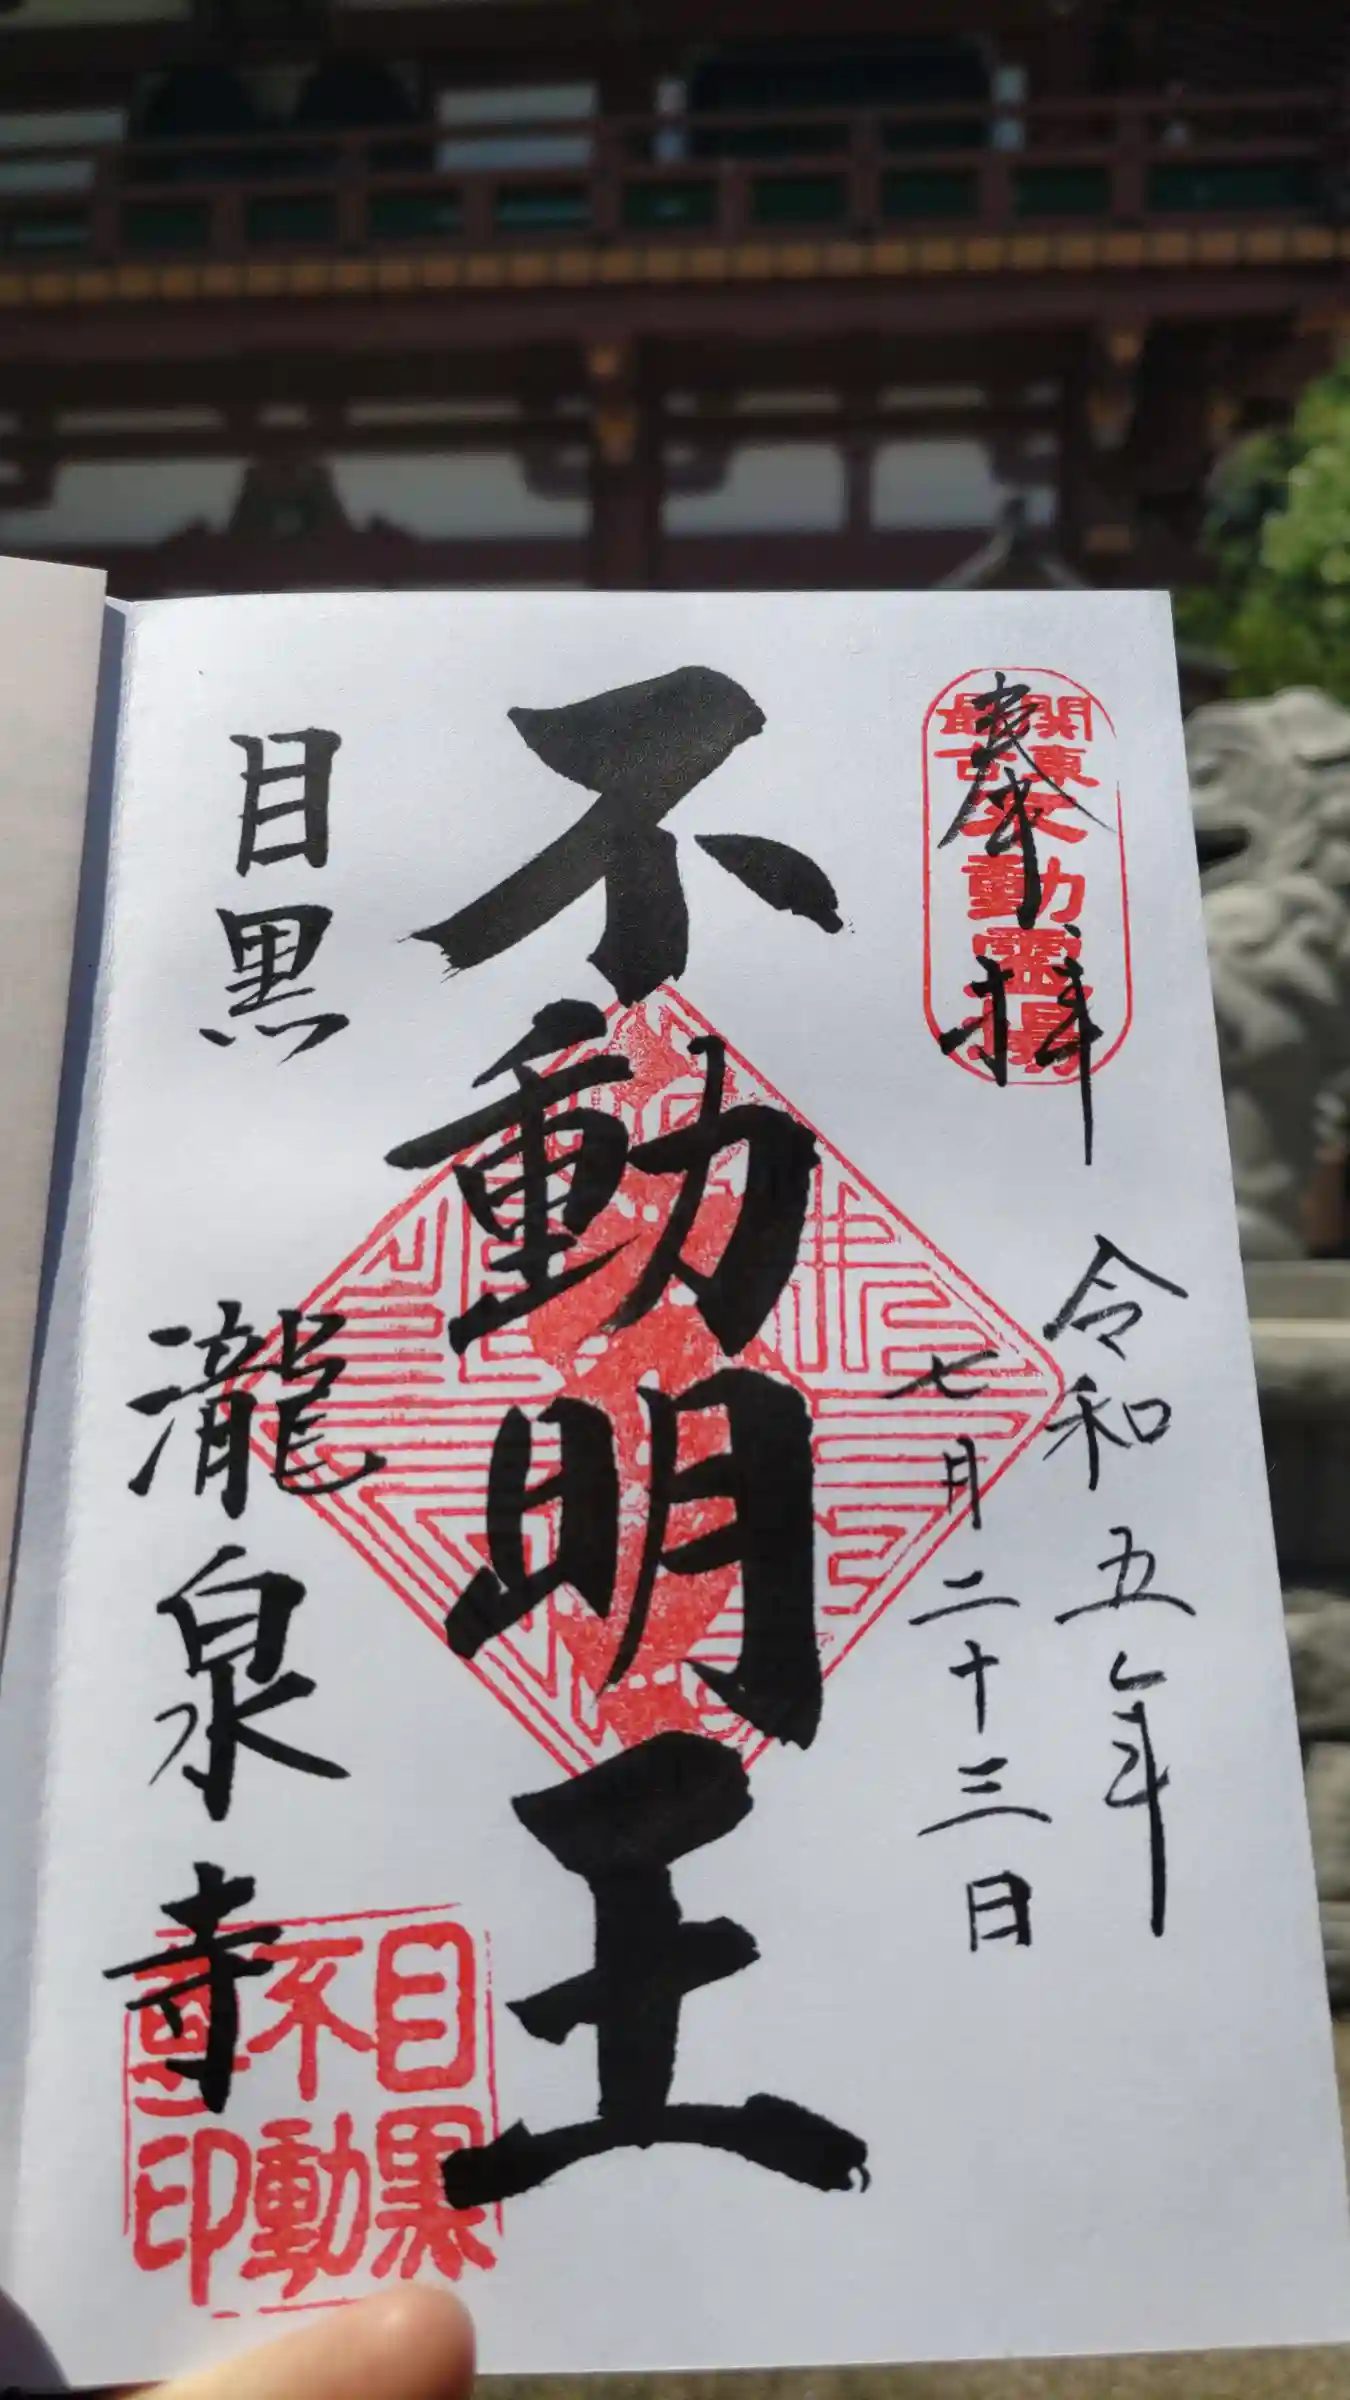 奉拝
関東
最古
不動霊場
令和五年
七月二十三日
不動明王
目黒
瀧泉寺
目黒
不動
印